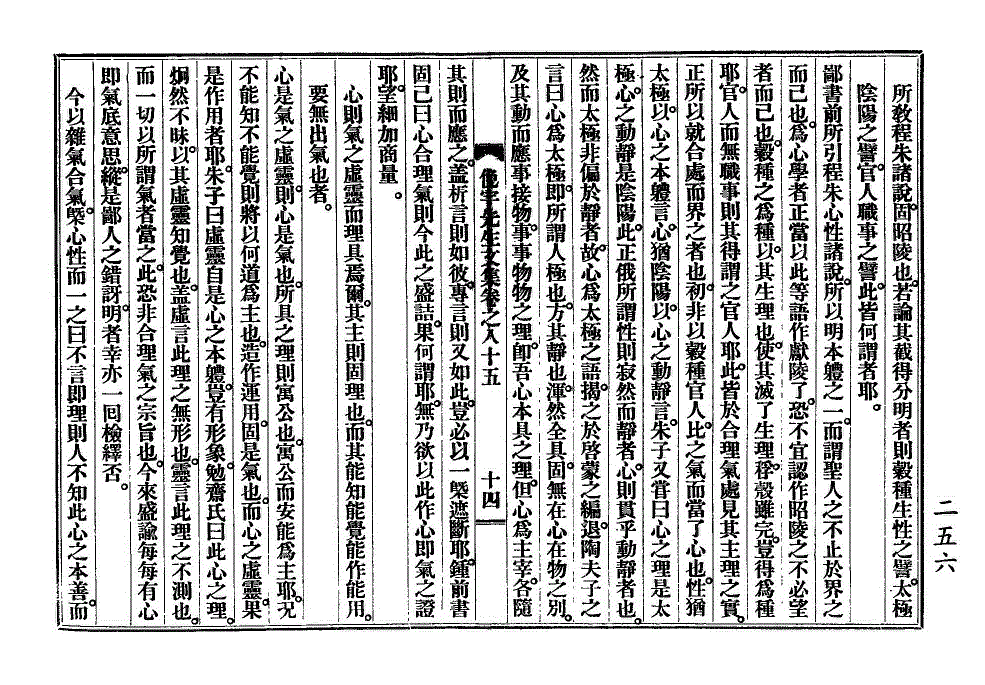 所敎程朱諸說。固昭陵也。若論其截得分明者則糓種生性之譬。太極
陰陽之譬。官人職事之譬。此皆何謂者耶。
鄙書前所引程朱心性諸說。所以明本軆之一。而謂聖人之不止於界之
而已也。爲心學者正當以此等語作獻陵了。恐不宜認作昭陵之不必望
者而已也。糓種之爲種。以其生理也。使其滅了生理。稃殼雖完。豈得爲種
耶。官人而無職事則其得謂之官人耶。此皆於合理氣處見其主理之實。
正所以就合處而界之者也。初非以糓種官人。比之氣而當了心也。性猶
太極。以心之本軆言。心猶陰陽。以心之動靜言。朱子又甞曰心之理是太
極。心之動靜是陰陽。此正俄所謂性則寂然而靜者。心則貫乎動靜者也。
然而太極非偏於靜者。故心爲太極之語。揭之於啓蒙之編。退陶夫子之
言曰心爲太極。卽所謂人極也。方其靜也。渾然全具。固無在心在物之別。
及其動而應事接物。事事物物之理。卽吾心本具之理。但心爲主宰。各隨
俛宇先生文集卷之八十五
十四
其則而應之。盖析言則如彼。專言則又如此。豈必以一槩遮斷耶。鍾前書
固已曰心合理氣則今此之盛詰。果何謂耶。無乃欲以此作心卽氣之證
耶。望細加商量。
心則氣之虛靈而理具焉爾。其主則固理也。而其能知能覺能作能用。
要無出氣也者。
心是氣之虛靈。則心是氣也。所具之理則寓公也。寓公而安能爲主耶。况
不能知不能覺則將以何道爲主也。造作運用。固是氣也。而心之虛靈。果
是作用者耶。朱子曰虛靈自是心之本軆。豈有形象。勉齋氏曰此心之理。
炯然不昧。以其虛靈知覺也。盖虛言此理之無形也。靈言此理之不測也。
而一切以所謂氣者當之。此恐非合理氣之宗旨也。今來盛諭每每有心
卽氣底意思。縱是鄙人之錯訝。明者幸亦一回檢繹否。
今以雜氣合氣。槩心性而一之曰不言卽理則人不知此心之本善。而
二五六